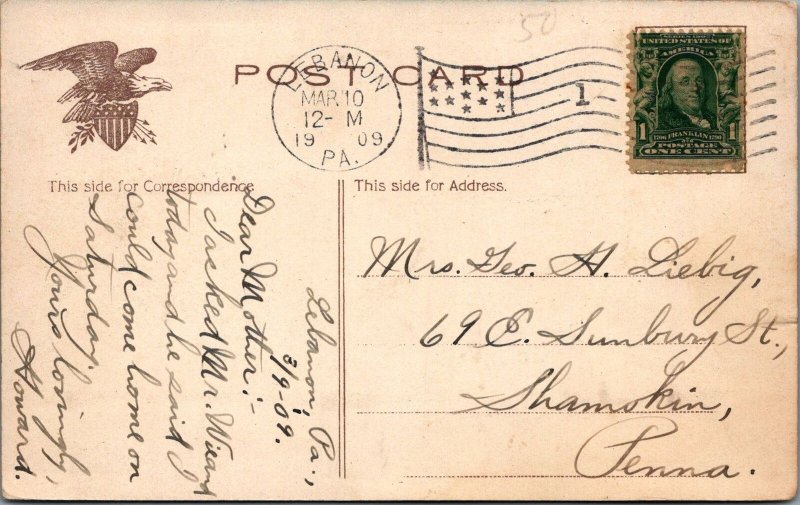 50
POST CARD
LEBANON
MAR 10
12- M
19 09
PA.
1
SERIES 1902
UNITED STATES OF
AMERICA
1 1706 FRANKLIN 1790 1
POSTAGE
ONE CENT
This side for Correspondence
This side for Address.
Lebanon, Pa.,
3/9-09.
Dear Mother:-
I asked Mr. Wieand
today and he said I
could come home on
Saturday.
Yours lovingly,
Howard.
Mrs. Geo. H. Liebig,
69 E. Sunbury St.,
Shamokin,
Penna.